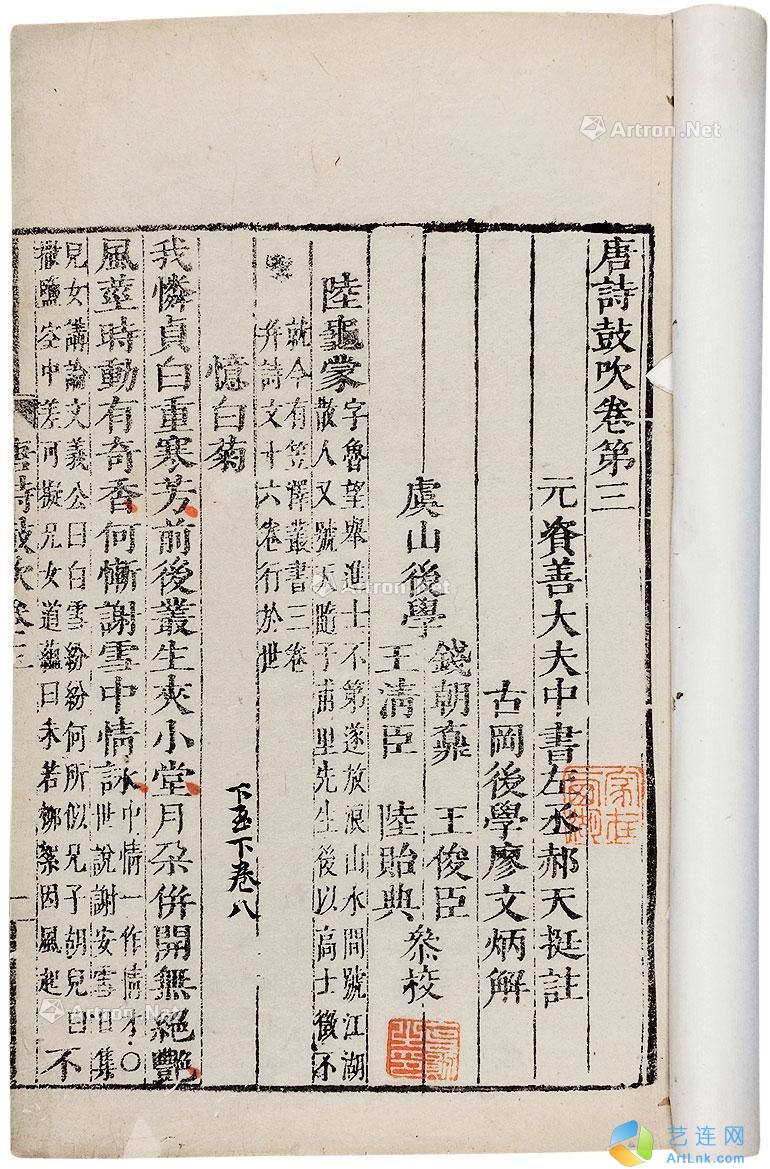 唐詩鼓吹卷第三
元資善大夫中書左丞郝天挺註
古岡後學廖文炳解
錢朝鼒 王俊臣
虞山後學
參校
王清臣 陸貽典
陸龜蒙
字魯望舉進士不第遂放浪山水間號江湖
散人又號天隨子甫里先生後以高士徵不
就今有笠澤叢書三卷
并詩文十六卷行於世
憶白菊
下五下卷八
我憐貞白重寒芳前後叢生夾小堂月朶併開無絕艷
風莖時動有奇香何慚謝雪中情詠
中情一作情才○
世說謝安雪日集
兒女講論文義公曰白雪紛紛何所似兄子胡兒曰
撒鹽空中差可擬兄女道蘊曰未若柳絮因風起
不
唐詩鼓吹卷三
一
Artron.Net
Artron.Net
Artron.Net
艺连网
ArtLnk.com